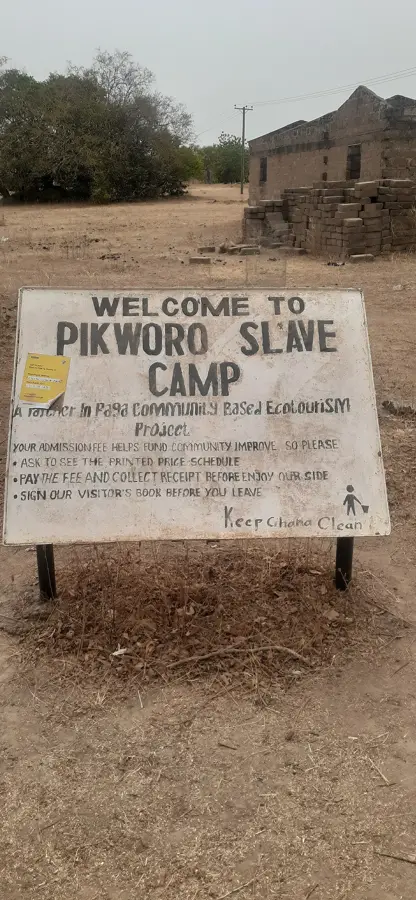 WELCOME TO
PIKWORO SLAVE
CAMP
A Partner In Paga Community Based Ecotourism
Project
YOUR ADMISSION FEE HELPS FUND COMMUNITY IMPROVE SO PLEASE
• ASK TO SEE THE PRINTED PRICE SCHEDULE
• PAY THE FEE AND COLLECT RECEIPT BEFORE ENJOY OUR SIDE
• SIGN OUR VISITOR'S BOOK BEFORE YOU LEAVE
Keep Ghana Clean